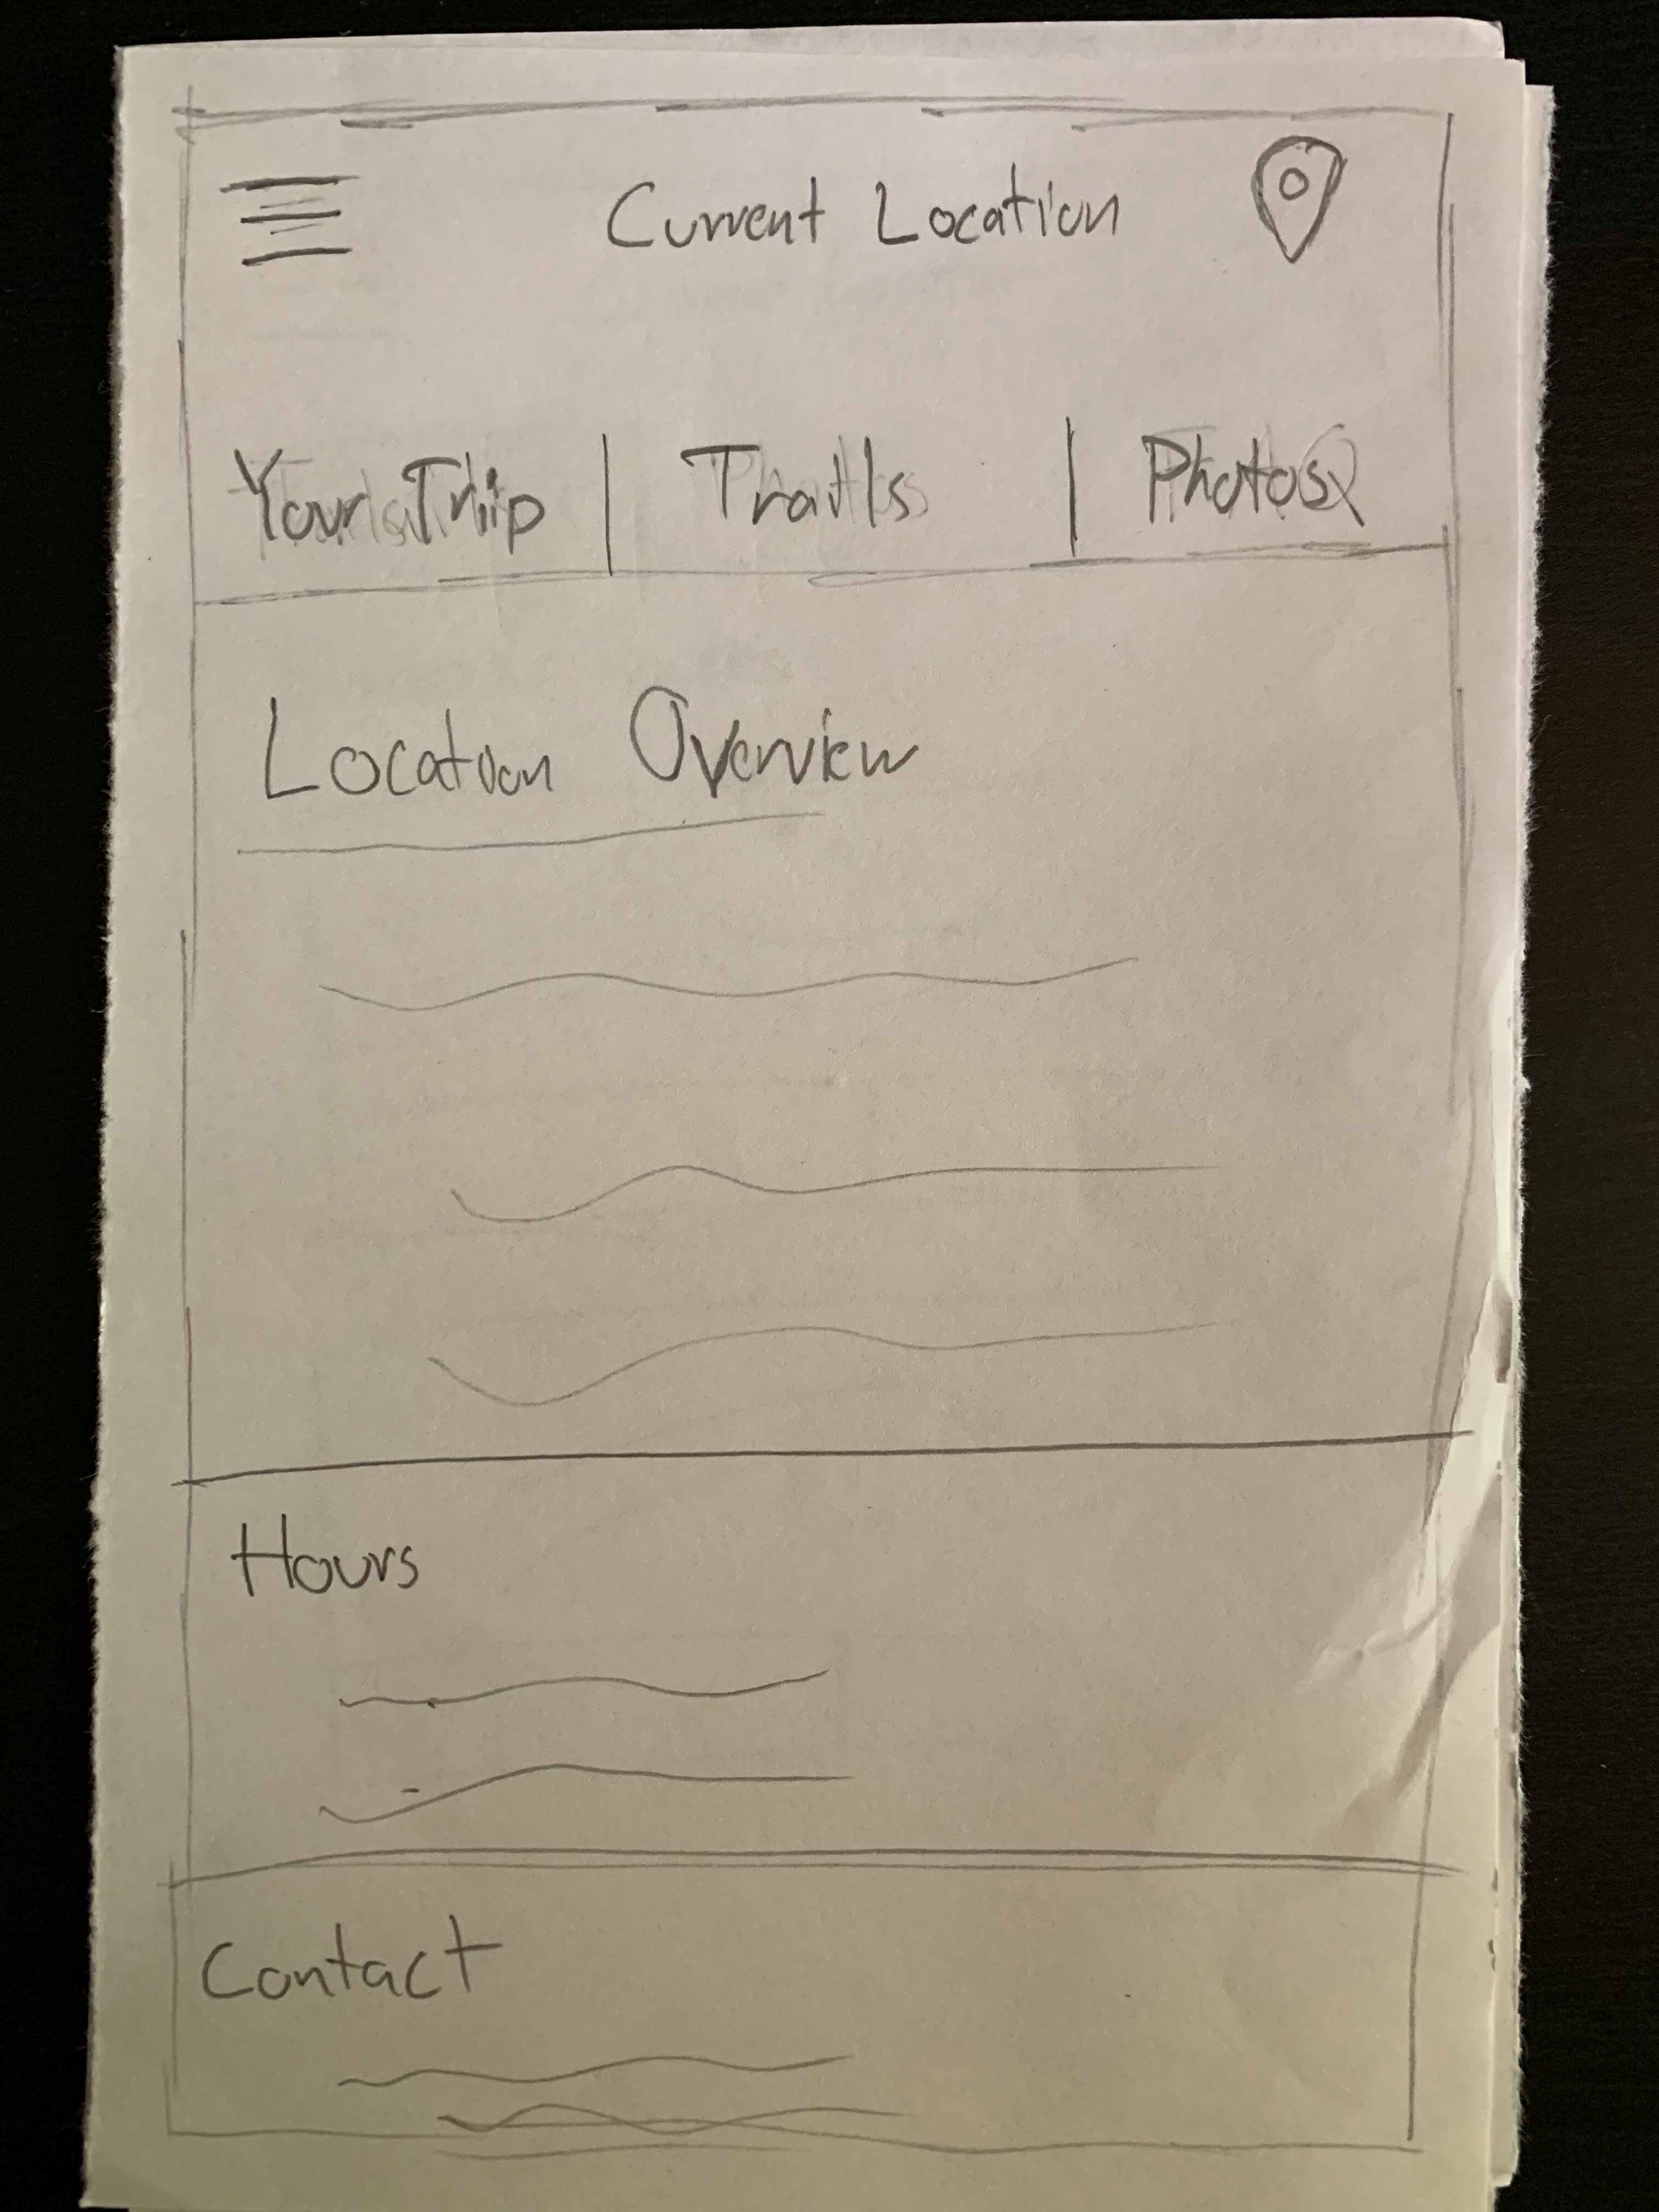 Current Location
Your Trip | Trails | Photos
Location Overview
Hours
Contact